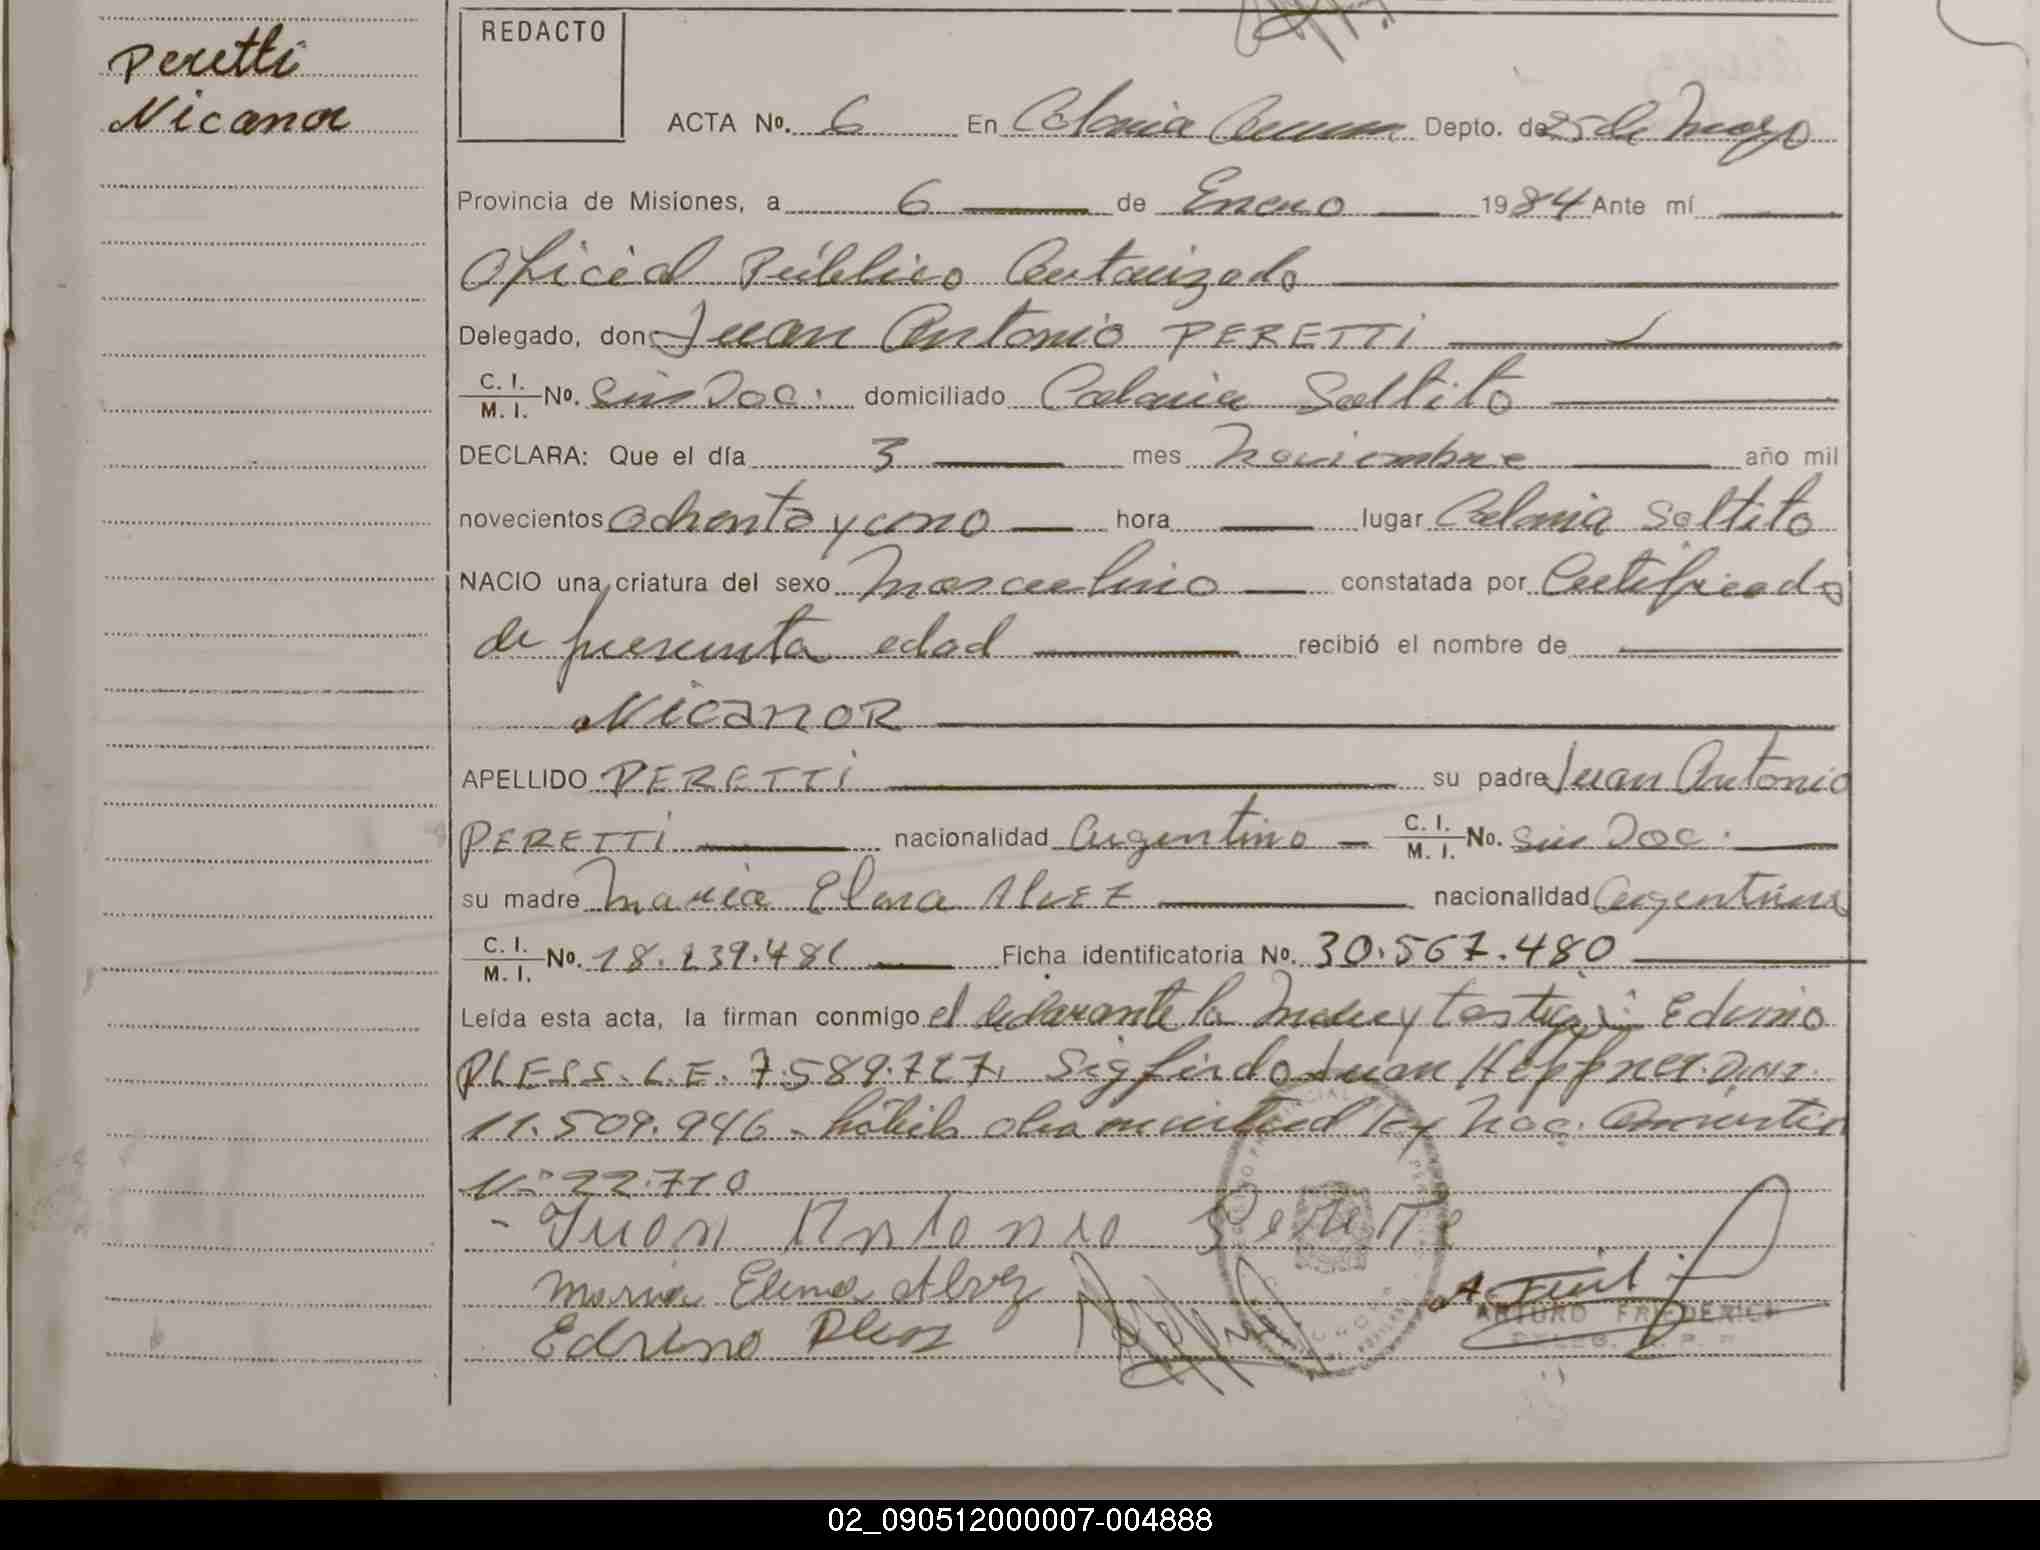 Peretti
Nicanor
REDACTO
ACTA Nº. 6 En Colonia Depto. de 25 de Mayo
Provincia de Misiones, a 6 de Enero 1984 Ante mí
Oficial Público Autorizado
Delegado, don Juan Antonio PERETTI
C. I. / M. I. Nº. Sin Doc: domiciliado Colonia Saltito
DECLARA: Que el día 3 mes Noviembre año mil
novecientos ochenta y uno hora lugar Colonia Saltito
NACIO una criatura del sexo Masculino constatada por Certificado
de presunta edad recibió el nombre de
NICANOR
APELLIDO PERETTI su padre Juan Antonio
PERETTI nacionalidad Argentino C. I. / M. I. No. Sin Doc.
su madre Maria Elena Alvez nacionalidad Argentina
C. I. / M. I. No. Ficha identificatoria No. 30.567.480
Leída esta acta, la firman conmigo el declarante la Madre y testigos: Eduino
PLESS. L.E. 7.589.727. Juan Heppner.
11.509.946 - Ley Nac.
Nº 22.710
- Juan Antonio Peretti
Maria Elena Alvez
Edvino Pless
ARTURO FRIEDERICH
02_090512000007-004888